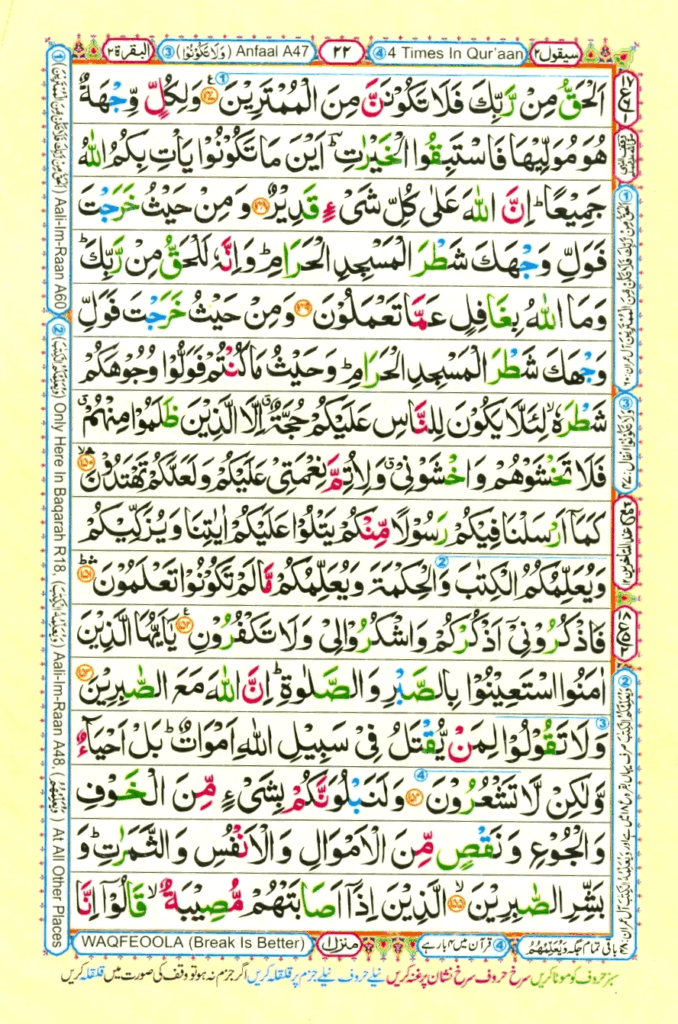 سيقول ٢
④ 4 Times In Qur'aan
٢٢
③ (وَلَا تَكُوْنُوْا) Anfaal A47
البقرة ٢
اَلْحَقُّ مِنْ رَّبِّكَ فَلَا تَكُوْنَنَّ مِنَ الْمُمْتَرِيْنَ ۞ وَلِكُلٍّ وِّجْهَةٌ
هُوَ مُوَلِّيْهَا فَاسْتَبِقُوا الْخَيْرٰتِ ؕ اَيْنَ مَا تَكُوْنُوْا يَاْتِ بِكُمُ اللّٰهُ
جَمِيْعًا ؕ اِنَّ اللّٰهَ عَلٰى كُلِّ شَىْءٍ قَدِيْرٌ ۞ وَ مِنْ حَيْثُ خَرَجْتَ
فَوَلِّ وَجْهَكَ شَطْرَ الْمَسْجِدِ الْحَرَامِ ؕ وَاِنَّهٗ لَلْحَقُّ مِنْ رَّبِّكَ ؕ
وَمَا اللّٰهُ بِغَافِلٍ عَمَّا تَعْمَلُوْنَ ۞ وَمِنْ حَيْثُ خَرَجْتَ فَوَلِّ
وَجْهَكَ شَطْرَ الْمَسْجِدِ الْحَرَامِ ؕ وَحَيْثُ مَا كُنْتُمْ فَوَلُّوْا وُجُوْهَكُمْ
شَطْرَهٗ ۙ لِئَلَّا يَكُوْنَ لِلنَّاسِ عَلَيْكُمْ حُجَّةٌ ۙ اِلَّا الَّذِيْنَ ظَلَمُوْا مِنْهُمْ ۙ
فَلَا تَخْشَوْهُمْ وَاخْشَوْنِىْ ۙ وَلِاُتِمَّ نِعْمَتِىْ عَلَيْكُمْ وَلَعَلَّكُمْ تَهْتَدُوْنَ ۞
كَمَاۤ اَرْسَلْنَا فِيْكُمْ رَسُوْلًا مِّنْكُمْ يَتْلُوْا عَلَيْكُمْ اٰيٰتِنَا وَيُزَكِّيْكُمْ
وَيُعَلِّمُكُمُ الْكِتٰبَ وَالْحِكْمَةَ وَيُعَلِّمُكُمْ مَّا لَمْ تَكُوْنُوْا تَعْلَمُوْنَ ۞
فَاذْكُرُوْنِىْۤ اَذْكُرْكُمْ وَاشْكُرُوْا لِىْ وَلَا تَكْفُرُوْنِ ۞ يٰۤاَيُّهَا الَّذِيْنَ
اٰمَنُوا اسْتَعِيْنُوْا بِالصَّبْرِ وَالصَّلٰوةِ ؕ اِنَّ اللّٰهَ مَعَ الصّٰبِرِيْنَ ۞
وَلَا تَقُوْلُوْا لِمَنْ يُّقْتَلُ فِىْ سَبِيْلِ اللّٰهِ اَمْوَاتٌ ؕ بَلْ اَحْيَآءٌ
وَّلٰكِنْ لَّا تَشْعُرُوْنَ ۞ وَلَنَبْلُوَنَّكُمْ بِشَىْءٍ مِّنَ الْخَوْفِ
وَالْجُوْعِ وَنَقْصٍ مِّنَ الْاَمْوَالِ وَالْاَنْفُسِ وَالثَّمَرٰتِ ؕ وَ
بَشِّرِ الصّٰبِرِيْنَ ۞ الَّذِيْنَ اِذَاۤ اَصَابَتْهُمْ مُّصِيْبَةٌ ۙ قَالُوْۤا اِنَّا
① (اَلْحَقُّ مِنْ رَّبِّكَ فَلَا تَكُنْ مِّنَ الْمُمْتَرِيْنَ) Aali-Im-Raan A60
② (وَيُعَلِّمُكُمُ الْكِتٰبَ) Only Here In Baqarah R18, (وَيُعَلِّمُهُ الْكِتٰبَ) Aali-Im-Raan A48, (وَيُعَلِّمُهُمْ) At All Other Places
باقی تمام جگہ وَيُعَلِّمُهُمْ
④ قرآن میں ۴ بار ہے
منزل ١
WAQFEOOLA (Break Is Better)
سبز حروف کو موٹا کریں سرخ حروف سرخ نشان پر غنہ کریں نیلے حروف نیلے جزم پر قلقلہ کریں اگر جزم نہ ہو تو وقف کی صورت میں قلقلہ کریں